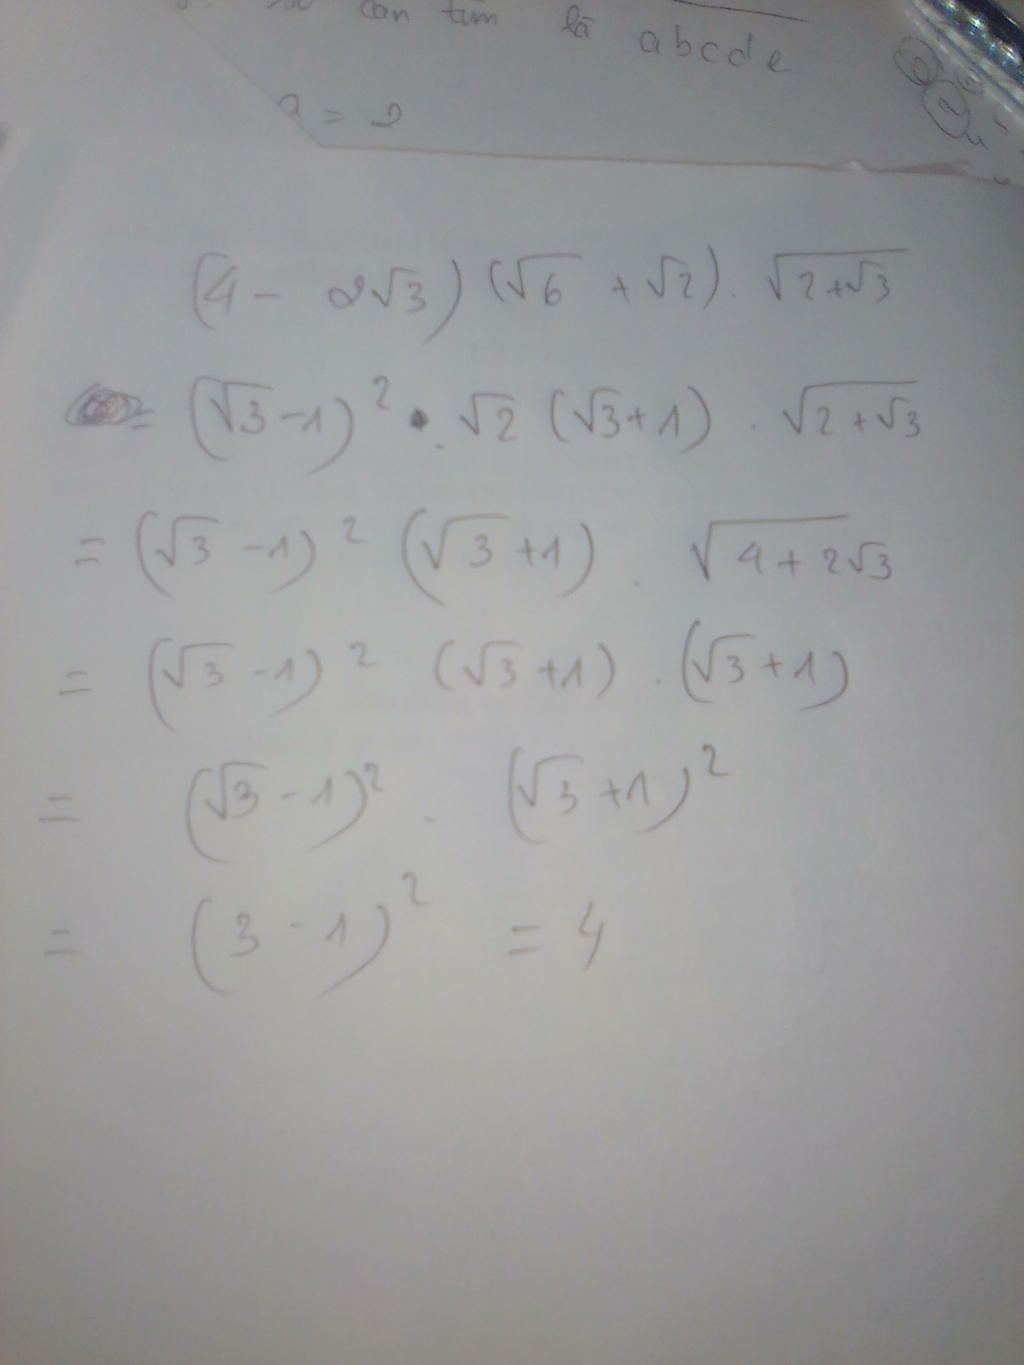 cần tìm là abcde
a = 2
(4 - 2√3) (√6 + √2) . √(2+√3)
= (√3-1)² . √2 (√3+1) . √(2+√3)
= (√3-1)² (√3+1) . √(4+2√3)
= (√3-1)² (√3+1) . (√3+1)
= (√3-1)² . (√3+1)²
= (3-1)² = 4